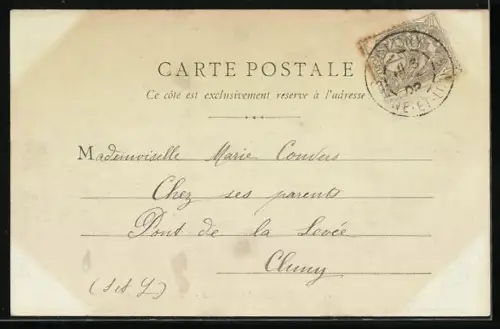 CARTE POSTALE
Ce côté est exclusivement réservé à l'adresse
Mademoiselle Marie Convers
Chez ses parents
Pont de la Levée
Cluny
(S et L)